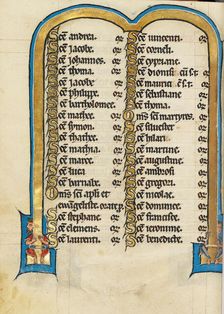 Sce andrea. or
Sce iacobe. or
Sce iohannes. or
Sce thoma. or
Sce iacobe. or
Sce philippe. or
Sce bartholomee. or
Sce mathee. or
Sce symon. or
Sce thathee. or
Sce mathia. or
Sce marce. or
Sce luca. or
Sce barnabe. or
Oms sci apli et
ewangeliste. orate p
Sce stephane. or
Sce clemens. or
Sce laurenti. or
Sce vincenti. or
Sce corneli. or
Sce cypriane. or
Sce dionisi cu s. t. or
Sce mauri cu s. t. or
Sce sebastiane. or
Sce thoma. or
Oms sci martyres. or
Sce siluester. or
Sce hilari. or
Sce martine. or
Sce augustine. or
Sce ambrosi. or
Sce gregori. or
Sce nicolae. or
Sce dominice. or
Sce francisce. or
Sce ieronime. or
Sce benedicte. or